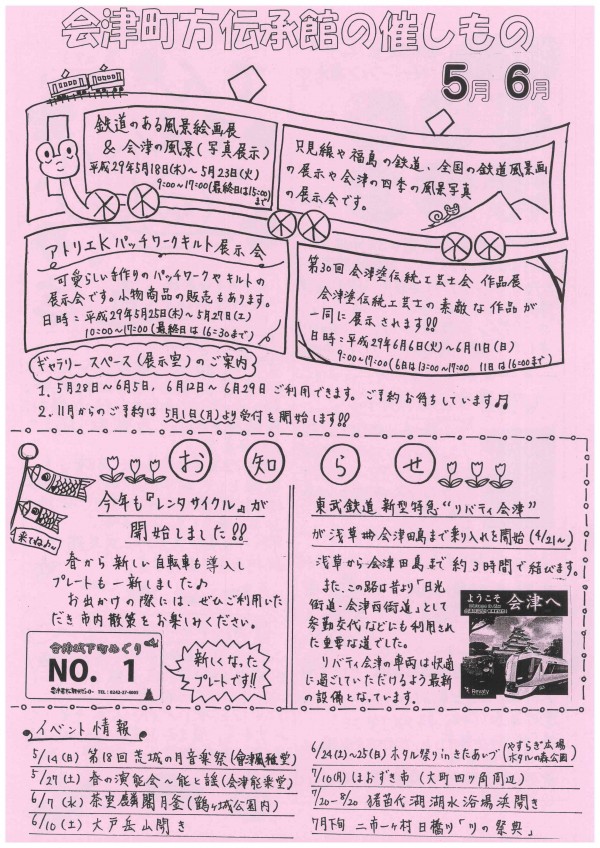 会津町方伝承館の催しもの
5月 6月
鉄道のある風景絵画展
& 会津の風景(写真展示)
平成29年5月18日(木)~5月23日(火)
9:00~17:00(最終日は15:00)まで
只見線や福島の鉄道、全国の鉄道風景画
の展示や会津の四季の風景写真
の展示会です。
アトリエK パッチワークキルト展示会
可愛らしい手作りのパッチワークやキルトの
展示会です。小物商品の販売もあります。
日時:平成29年5月25日(木)~5月27日(土)
10:00~17:00(最終日は16:30まで)
第30回 会津塗伝統工芸士会 作品展
会津塗伝統工芸士の素敵な作品が
一同に展示されます!!
日時:平成29年6月6日(火)~6月11日(日)
9:00~17:00(6日は13:00~17:00 11日は16:00まで)
ギャラリースペース(展示室)のご案内
1. 5月28日~6月5日, 6月12日~6月29日ご利用できます。ご予約お待ちしています♫
2. 11月からのご予約は5月1日(月)より受付を開始します!!
お知らせ
来てね♪~
今年も『レンタサイクル』が
開始しました!!
春から新しい自転車も導入し
プレートも一新しました♪
お出かけの際には、ぜひご利用いた
だき市内散策をお楽しみください。
会津城下町めぐり
NO. 1
TEL:0242-27-4005
新しくなった
プレートです!!
東武鉄道 新型特急“リバティ会津”
が浅草⇔会津田島まで乗り入れを開始(4/21~)
浅草から会津田島まで約3時間で結びます。
また、この路は昔より「日光
街道・会津西街道」として
参勤交代などにも利用され
た重要な道でした。
リバティ会津の車両は快適
に過ごしていただけるよう最新
の設備となっています。
ようこそ
会津へ
Revaty
イベント情報
5/14(日) 第18回 荒城の月音楽祭(會津風雅堂)
5/27(土) 春の演能会~能と謡(会津能楽堂)
6/7(水) 茶室麟閣月釜(鶴ヶ城公園内)
6/10(土) 大戸岳山開き
6/24(土)~25(日) ホタル祭りinきたあいづ(やすらぎ広場 ホタルの森公園)
7/10(月) ほおずき市(大町四ツ角周辺)
7/20~8/20 猪苗代湖湖水浴場浜開き
7月下旬 二市一ヶ村日橋川「川の祭典」